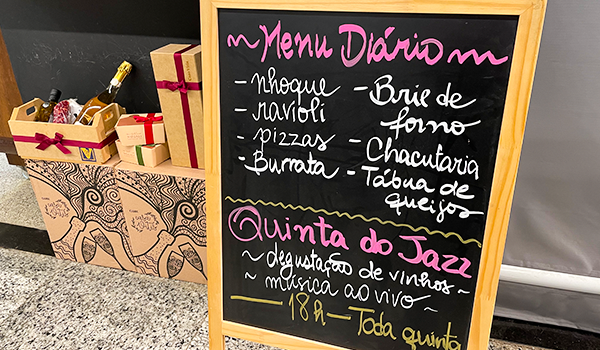 ~Menu Diário~
- nhoque
- ravioli
- pizzas
- Burrata
- Brie de
forno
- Chacutaria
- Tábua de
queijos
Quinta do Jazz
~ degustação de vinhos ~
~ música ao vivo ~
— 18h — Toda quinta